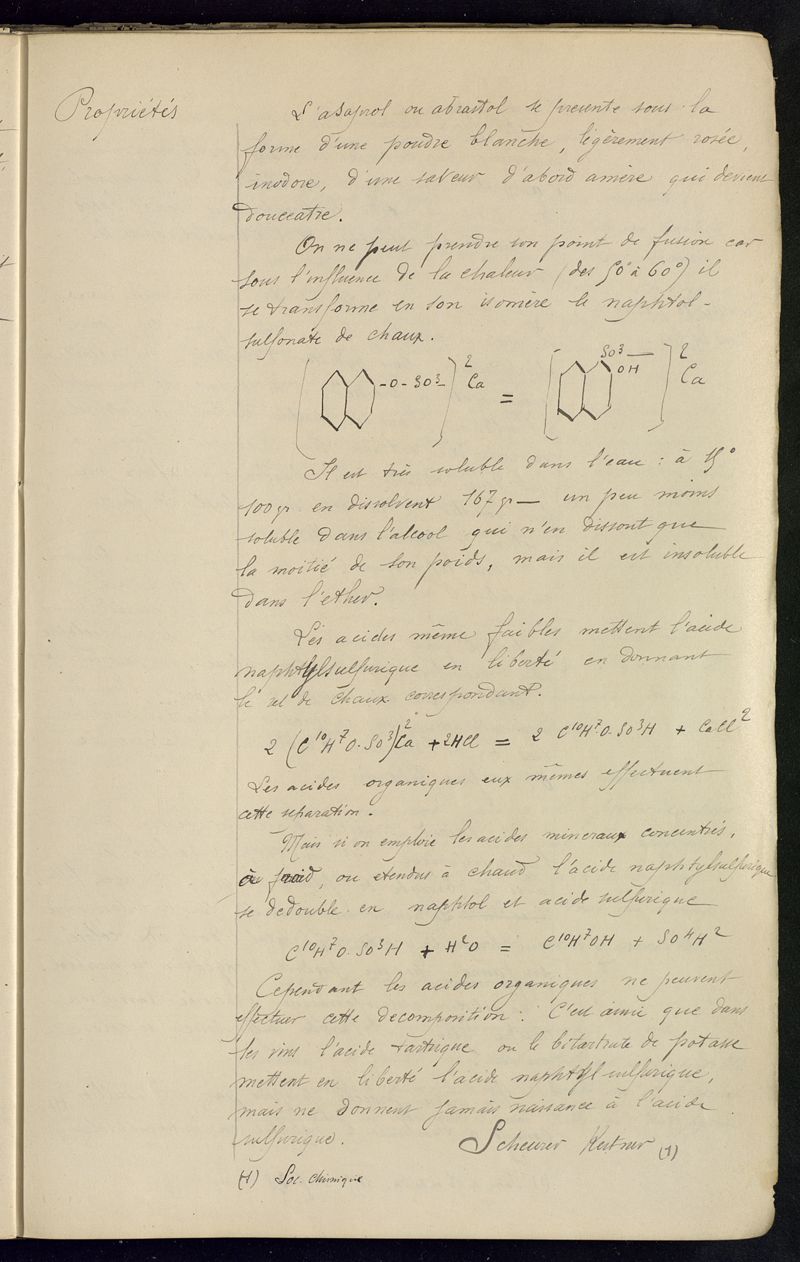 Propriétés
L'asaprol ou abrastol se presente sous la
forme d'une poudre blanche, légèrement rosée,
inodore, d'une saveur d'abord amère qui devient
douceatre.
On ne peut prendre son point de fusion car
sous l'influence de la chaleur (des 50° à 60°) il
se transforme en son isomère le naphtol-
sulfonate de chaux.
SO³ —
[ -O-SO³- ]² Ca = [ OH ]² Ca
Il est très soluble dans l'eau : à 15°
100 gr en dissolvent 167 gr — un peu moins
soluble dans l'alcool qui n'en dissout que
la moitié de son poids, mais il est insoluble
dans l'ether.
Les acides même faibles mettent l'acide
naphtylsulfurique en liberté en donnant
le sel de chaux correspondant.
2 (C¹⁰H⁷O.SO³)²Ca + 2HCl = 2 C¹⁰H⁷O.SO³H + CaCl²
Les acides organiques eux mêmes effectuent
cette separation.
Mais si on emploie les acides mineraux concentrés,
à froid, ou etendus à chaud l'acide naphtylsulfurique
se dedouble en naphtol et acide sulfurique
C¹⁰H⁷O.SO³H + H²O = C¹⁰H⁷OH + SO⁴H²
Cependant les acides organiques ne peuvent
effectuer cette decomposition. C'est ainsi que dans
les vins l'acide tartrique ou le bitartrate de potasse
mettent en liberté l'acide naphtyl sulfurique,
mais ne donnent jamais naissance à l'acide
sulfurique. Scheurer Kestner (1)
(1) Soc. chimique